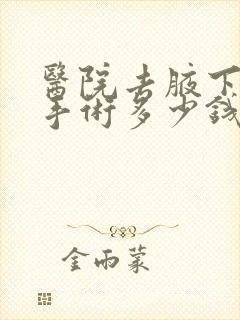 醫院去腋下
手術多少錢
金雨蒙